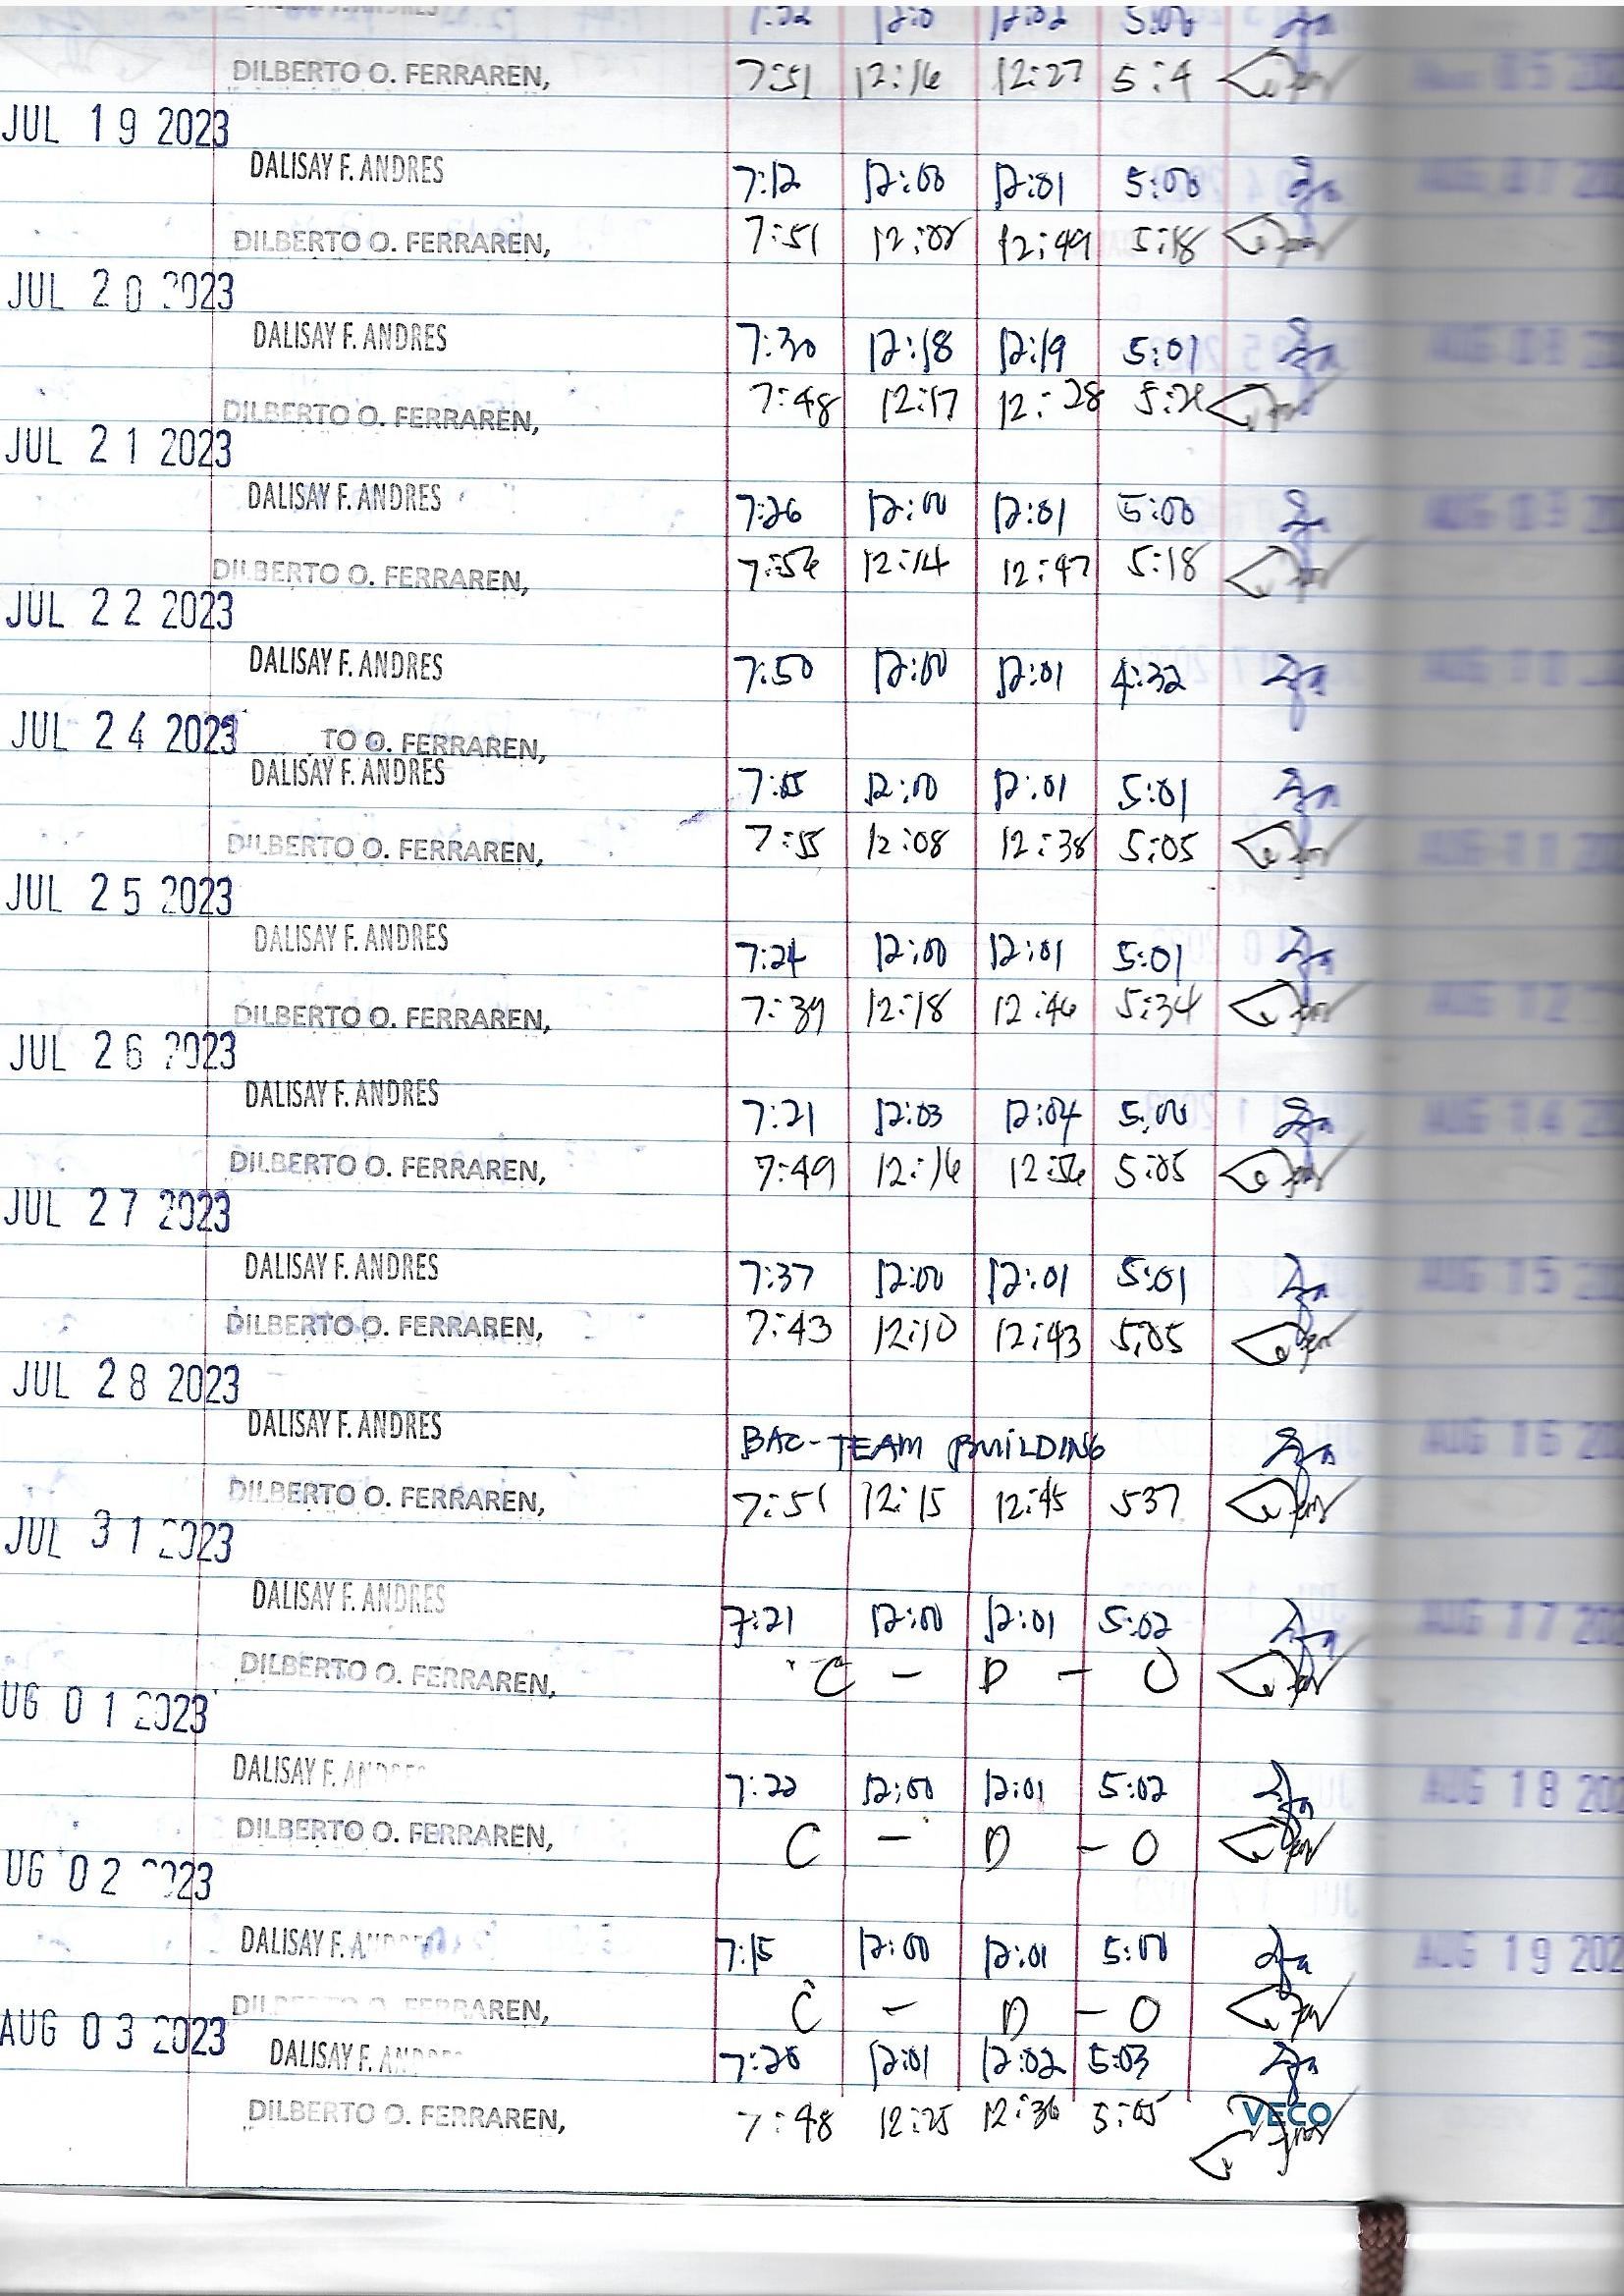 DILBERTO O. FERRAREN, 7:51 12:16 12:27 5:4
JUL 19 2023
DALISAY F. ANDRES 7:12 12:00 12:01 5:00
DILBERTO O. FERRAREN, 7:51 12:08 12:49 5:18
JUL 20 2023
DALISAY F. ANDRES 7:30 12:18 12:19 5:01
DILBERTO O. FERRAREN, 7:48 12:17 12:28
JUL 21 2023
DALISAY F. ANDRES 7:26 12:00 12:01 5:00
DILBERTO O. FERRAREN, 12:14 12:47 5:18
JUL 22 2023
DALISAY F. ANDRES 7:50 12:00 12:01 4:32
JUL 24 2023 TO O. FERRAREN,
DALISAY F. ANDRES 12:00 12:01 5:01
DILBERTO O. FERRAREN, 7:55 12:08 12:38 5:05
JUL 25 2023
DALISAY F. ANDRES 7:24 12:00 12:01 5:01
DILBERTO O. FERRAREN, 7:39 12:18 12:46 5:34
JUL 26 2023
DALISAY F. ANDRES 7:21 12:03 12:04 5:00
DILBERTO O. FERRAREN, 7:49 12:16 12:56 5:05
JUL 27 2023
DALISAY F. ANDRES 7:37 12:00 12:01 5:01
DILBERTO O. FERRAREN, 7:43 12:10 12:43 5:05
JUL 28 2023
DALISAY F. ANDRES BAC-TEAM BUILDING
DILBERTO O. FERRAREN, 7:51 12:15 12:45 537
JUL 31 2023
DALISAY F. ANDRES 7:21 12:00 12:01 5:02
DILBERTO O. FERRAREN, C - D - O
UG 01 2023
DALISAY F. ANDRES 7:22 12:00 12:01 5:02
DILBERTO O. FERRAREN, C - D - O
UG 02 2023
DALISAY F. 7:15 12:00 12:01 5:00
DILBERTO O. FERRAREN, C - D - O
AUG 03 2023
DALISAY F. ANDRES 7:20 12:01 12:02 5:03
DILBERTO O. FERRAREN, 7:48 12:25 12:36 5:05
VECO
AUG 16
AUG 17 202
AUG 18 202
AUG 19 202